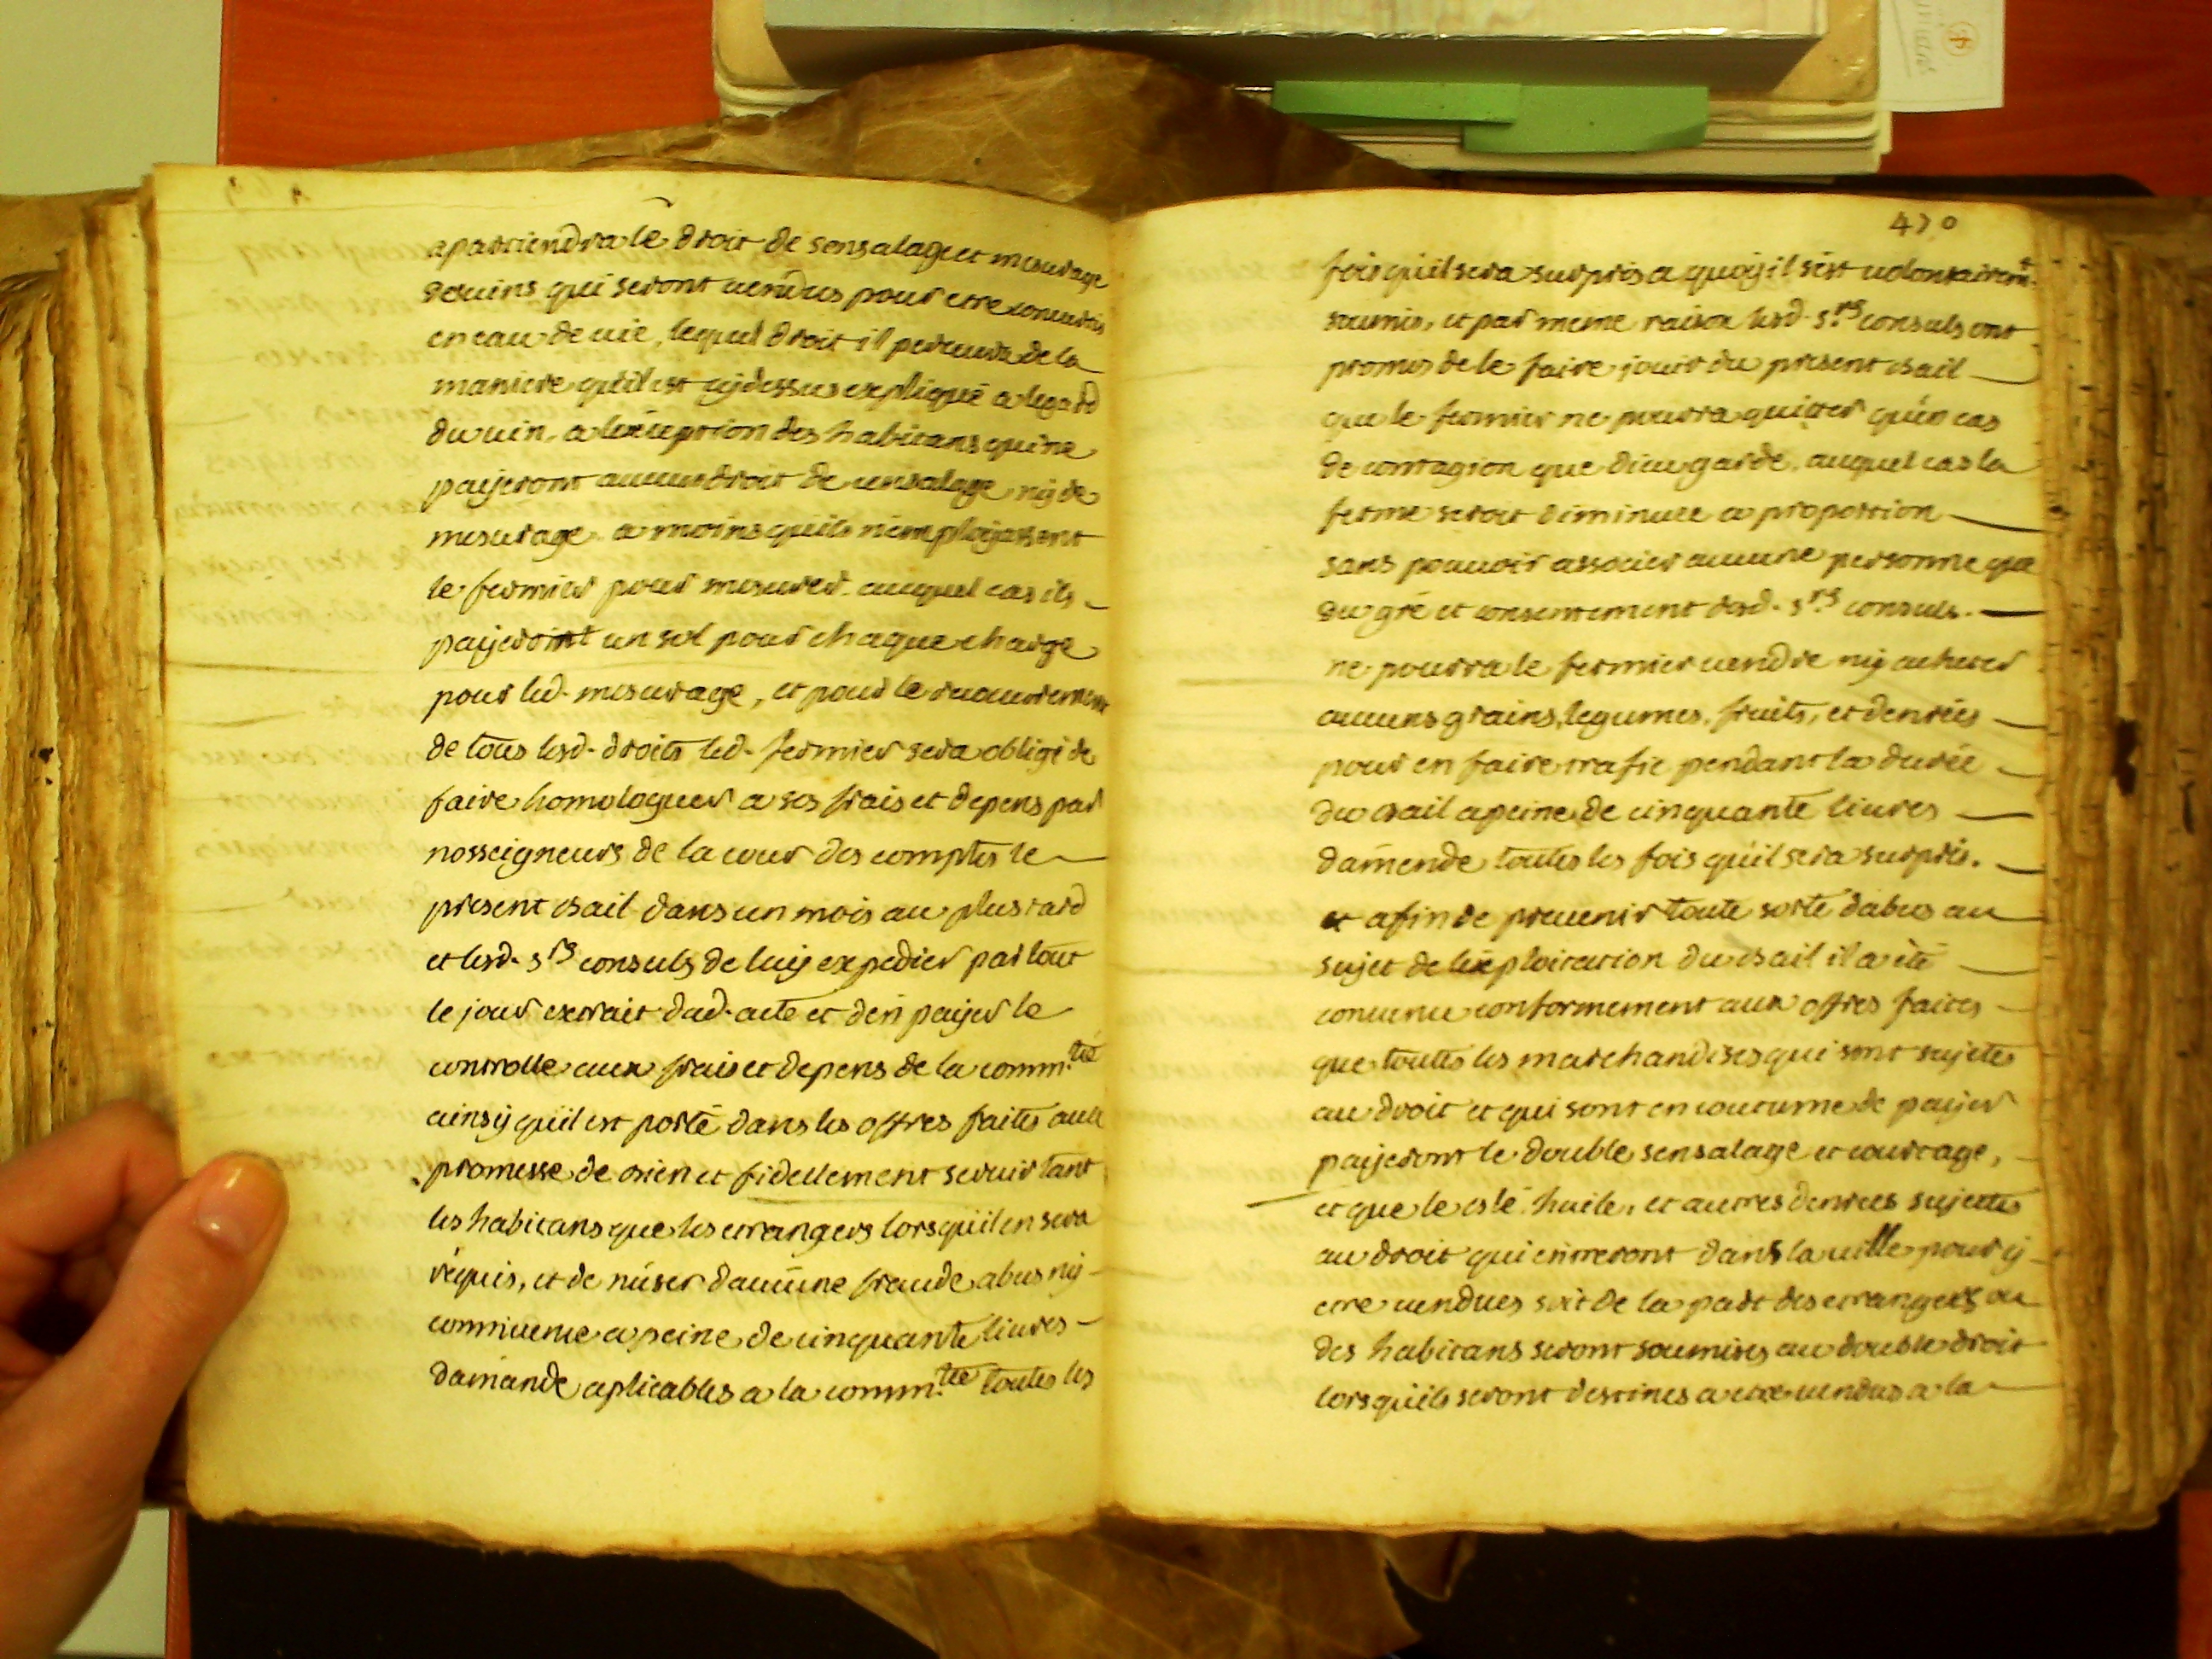 apartiendra le droit de sensalage et mesurage
des uins qui seront uendus pour etre conuertis
en eau de uie, lequel droit il perceura de la
maniere qu'il est cydessus expliqué a legard
du uin, a lexception des habitans qui ne
payeront aucun droit de censalage ny de
mesurage a moins quils n'employassent
le fermier pour mesurer. auquel cas ils
payeroint un sol pour chaque charge
pour led. mesurage, et pour le recouurement
de tous lesd. droits led. fermier sera obligé de
faire homologuer a ses frais et depens par
nosseigneurs de la cour des comptes le
present bail dans un mois au plus tard
et lesd. srs consuls de luy expedier par tout
le jour extrait dud. acte et d'en payer le
controlle aux frais et depens de la comm.té
ainsy qu'il est porté dans les offres faites auec
promesse de bien et fidellement seruir tant
les habitans que les etrangers lorsqu'il en sera
requis, et de n'user daucune fraude abus ny
conniuence a peine de cinquante liures
damande aplicables a la comm.té toutes les
470
fois qu'il sera surpris a quoy il s'est uolontairemt.
soumis, et par meme raison lesd. s.rs consuls ont
promis de le faire jouir du present bail
que le fermier ne pourra quitter qu'en cas
de contagion que dieu garde, auquel cas la
ferme seroit diminuee a proportion
sans pouuoir associer aucune personne que
du gré et consentement desd. s.rs consuls.
ne pourra le fermier uendre ny acheter
aucuns grains, legumes, fruits, et denrées
pour en faire trafic pendant la durée
du bail a peine de cinquante liures
damende toutes les fois qu'il sera surpris.
et afin de preuenir toute sorte dabus au
sujet de lexploitation du bail il a été
conuenu conformement aux offres faites
que toutes les marchandises qui sont sujetes
au droit et qui sont en coutume de payer
payeront le double sensalage et courtage,
et que le blé, huile, et autres denrees sujettes
au droit qui entreront dans la uille pour y
etre uendues soit de la part des etrangers ou
des habitans seront soumises au double droit
lorsqu'ils seront destines a etre uendus a la